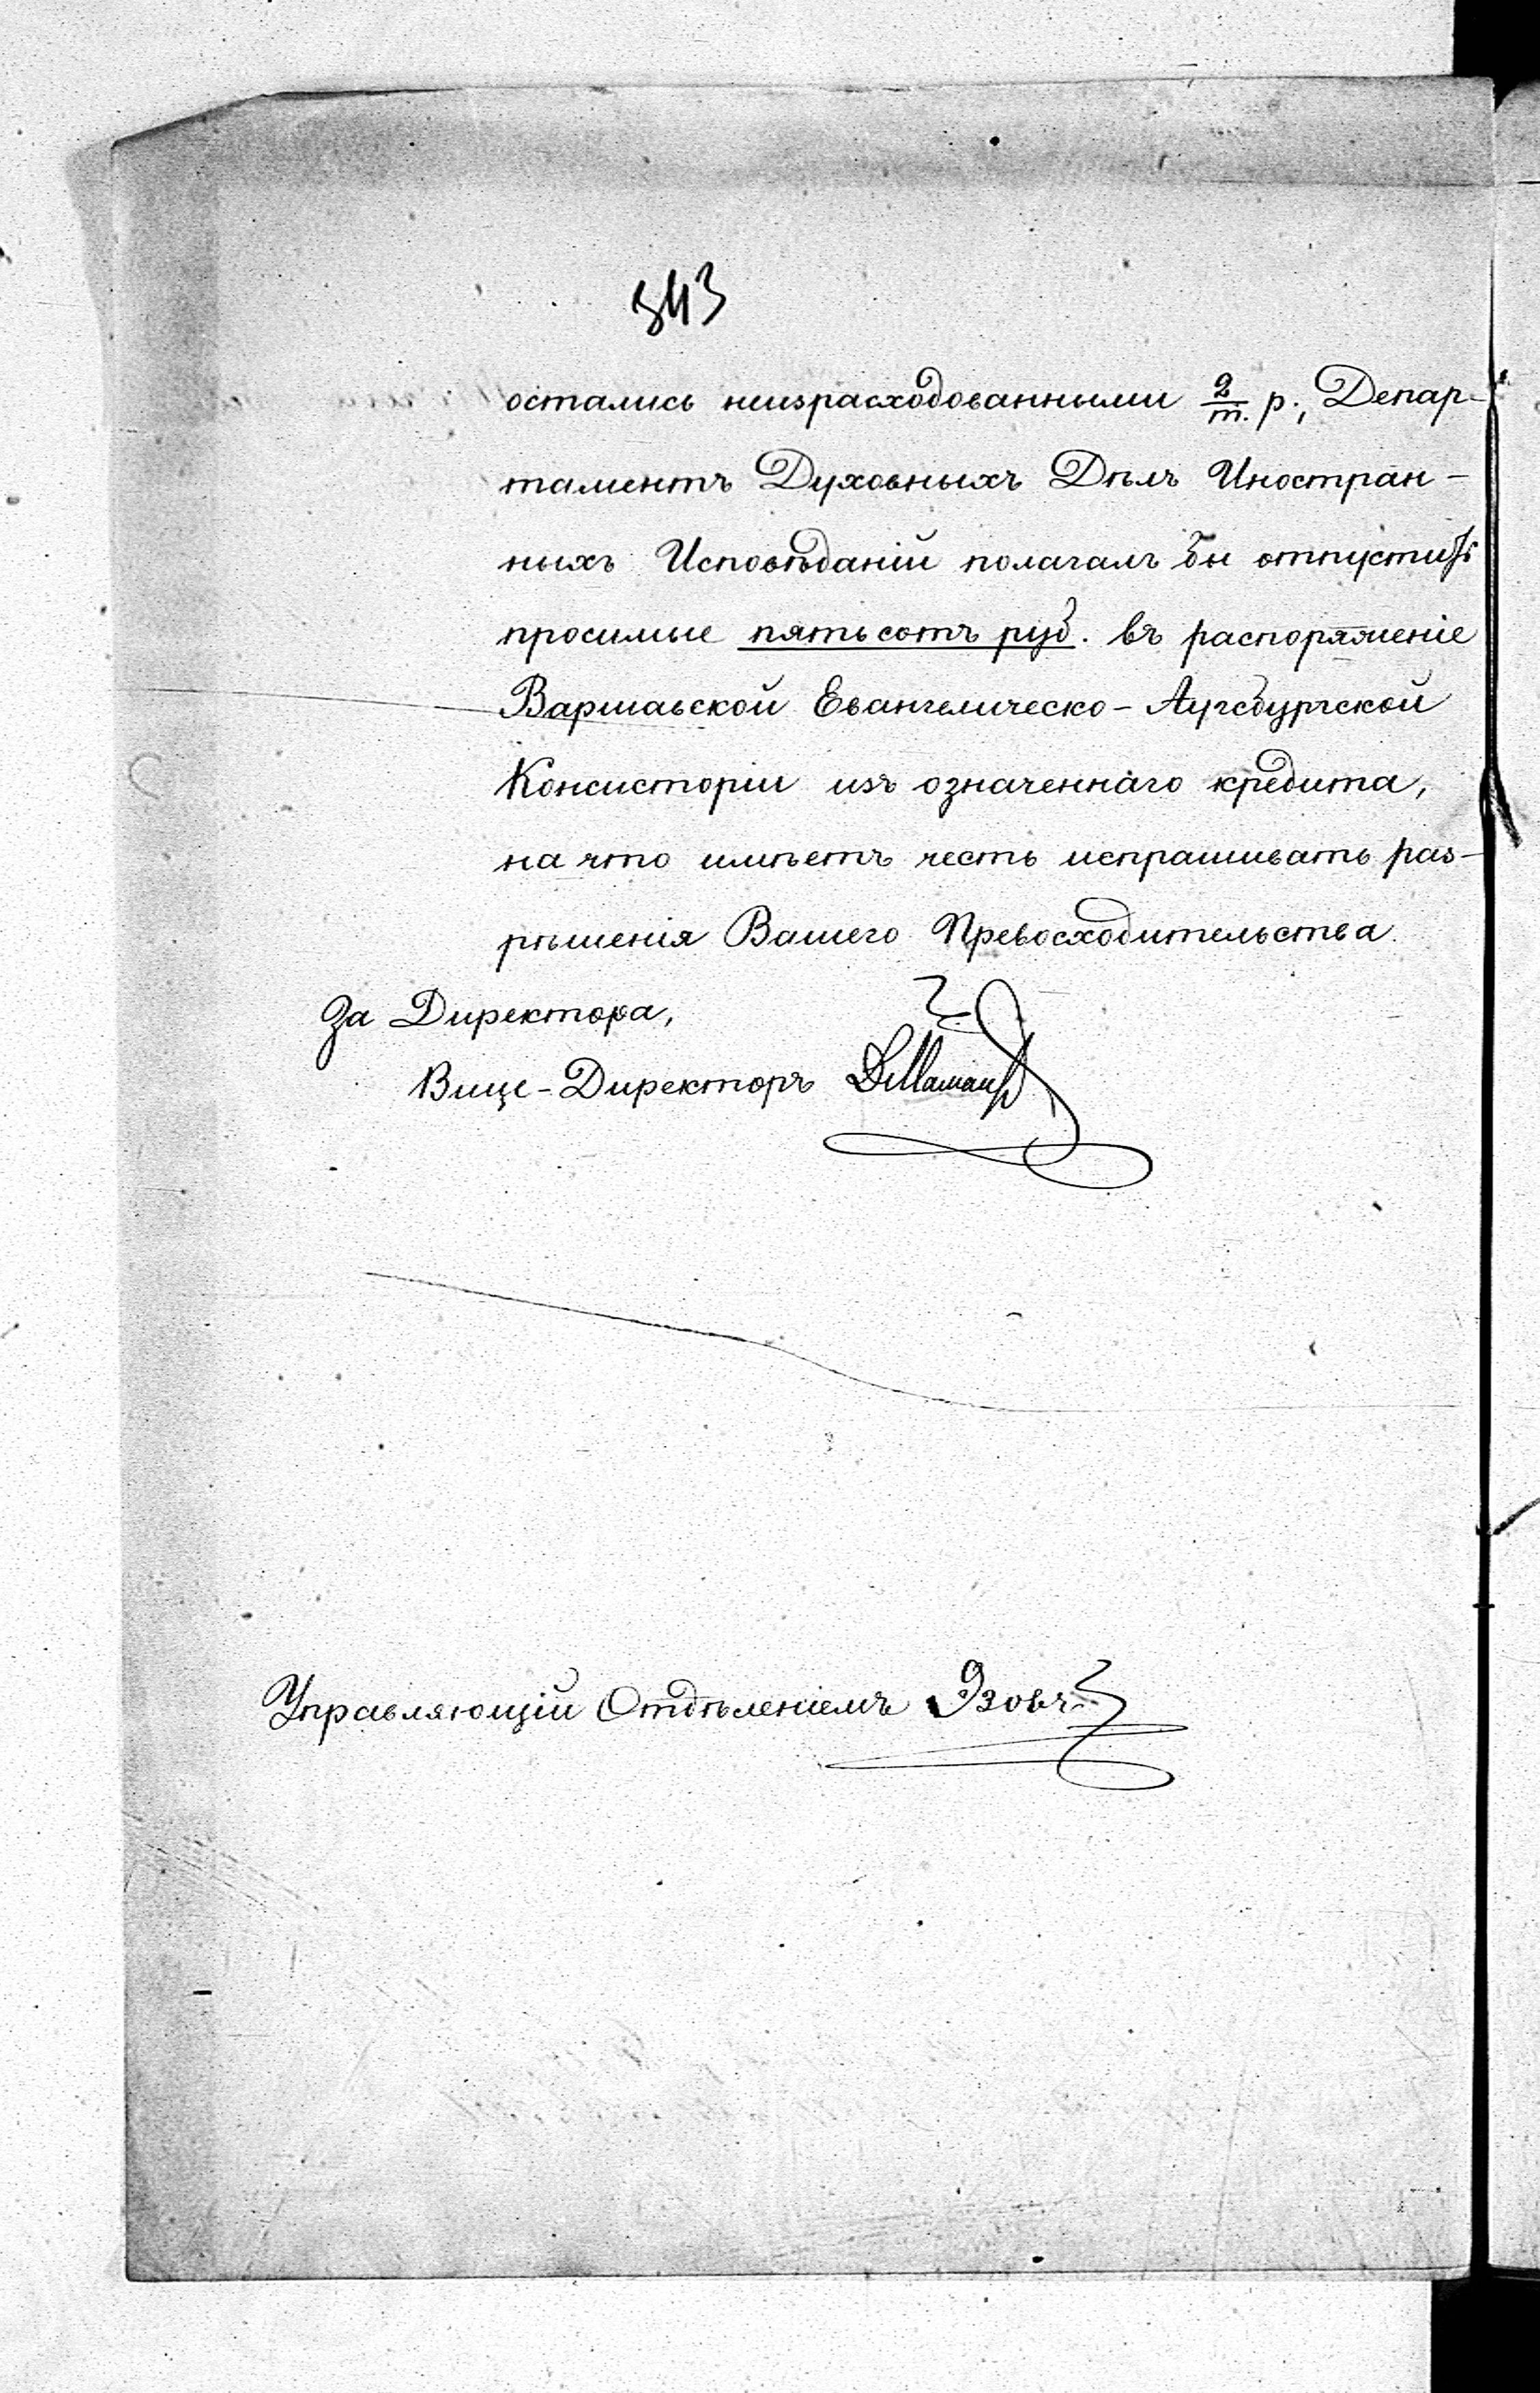 343
остались неизрасходованными 2/т. р., Депар-
таментъ Духовныхъ Дѣлъ Иностран-
ныхъ Исповѣданій полагалъ бы отпустить
просимые пятьсотъ руб. въ распоряженіе
Варшавской Евангелическо-Аугсбургской
Консисторіи изъ означеннаго кредита,
на что имѣетъ честь испрашивать раз-
рѣшенія Вашего Превосходительства.
За Директора,
Вице-Директоръ
Управляющій Отдѣленіемъ Эзовъ